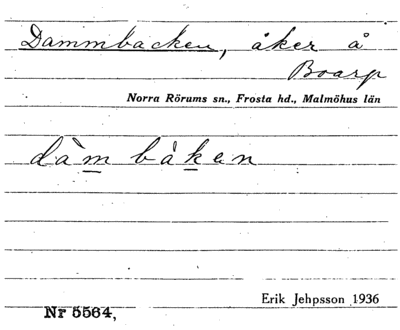 Dammbacken, åker å
Boarp
Norra Rörums sn., Frosta hd., Malmöhus län
dàm báken
Erik Jehpsson 1936
Nr 5564,